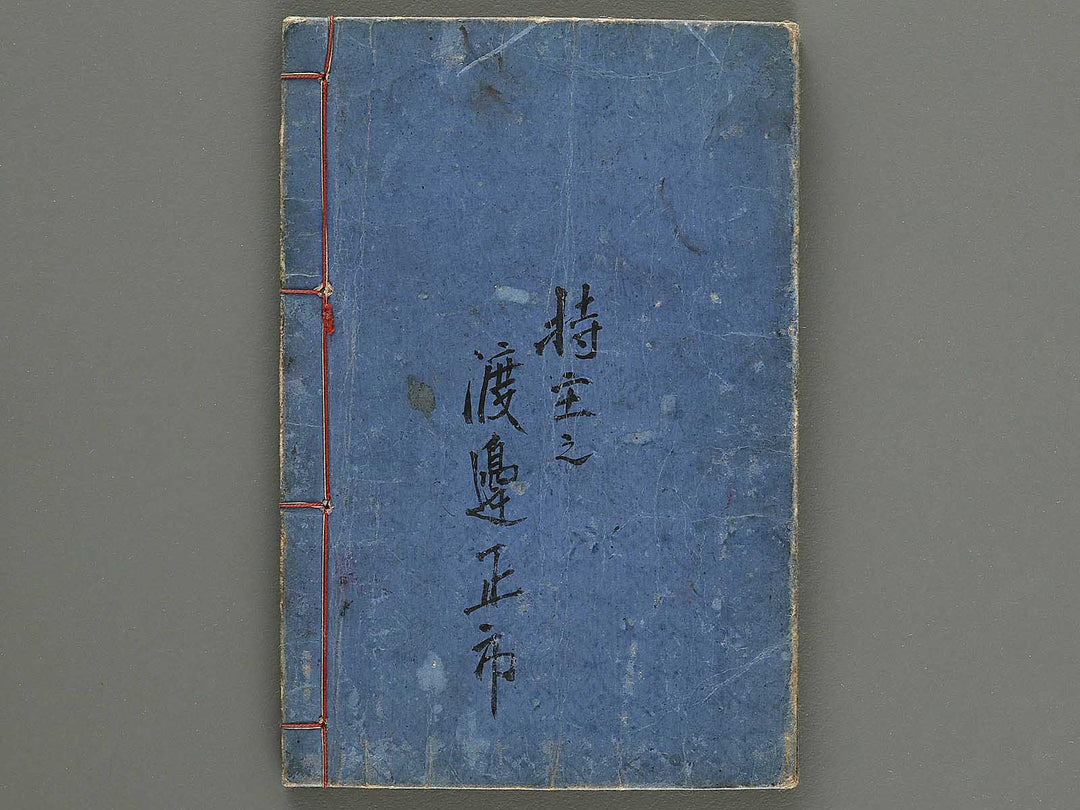 持主之
渡邉正市